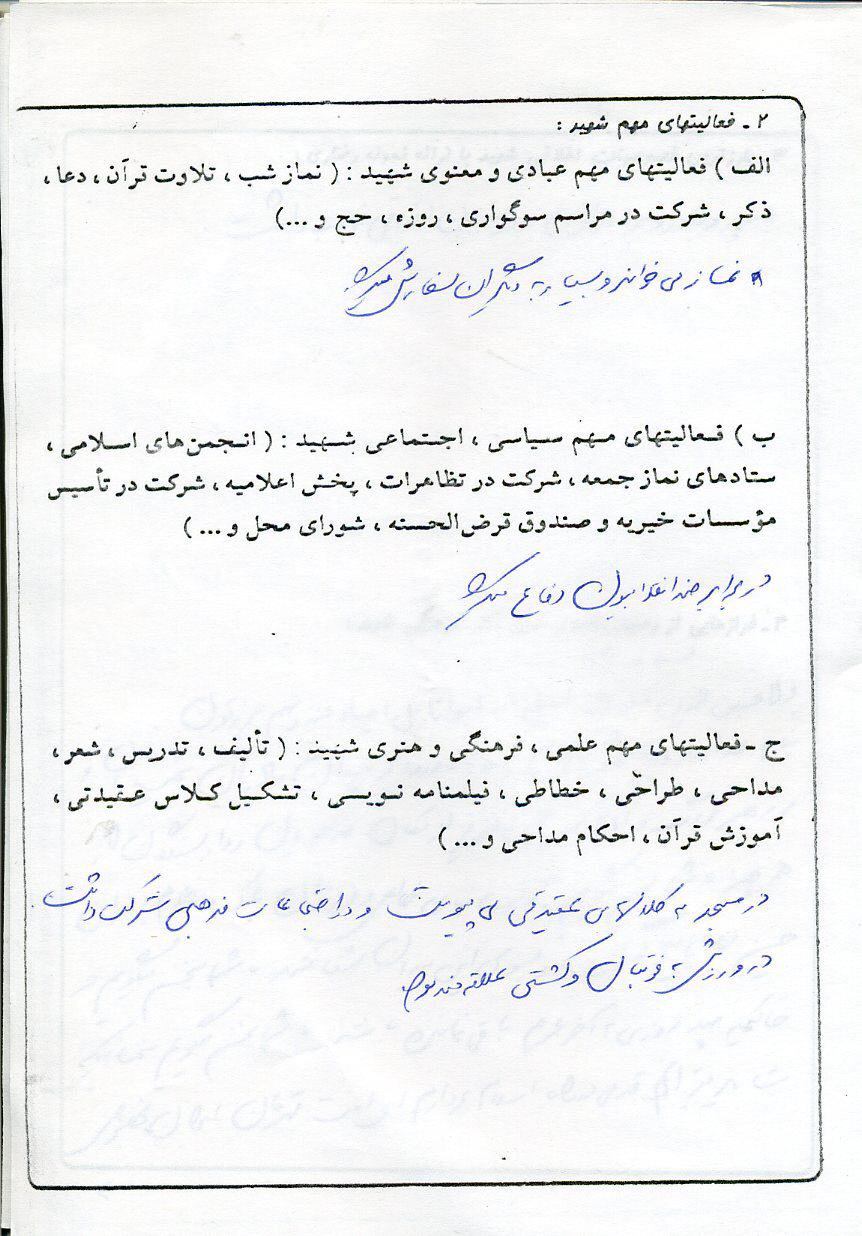 ۲ ـ فعالیتهای مهم شهید :
الف ) فعالیتهای مهم عبادی و معنوی شهید : ( نماز شب ، تلاوت قرآن ، دعا ،
ذکر ، شرکت در مراسم سوگواری ، روزه ، حج و ...)
نماز می خواند و بسیار به دیگران سفارش میکرد
ب ) فعالیتهای مهم سیاسی ، اجتماعی شهید : ( انجمن‌های اسلامی ،
ستادهای نماز جمعه ، شرکت در تظاهرات ، پخش اعلامیه ، شرکت در تأسیس
مؤسسات خیریه و صندوق قرض‌الحسنه ، شورای محل و ... )
در برابر ضد انقلابیون دفاع میکرد
ج ـ فعالیتهای مهم علمی ، فرهنگی و هنری شهید : ( تألیف ، تدریس ، شعر ،
مداحی ، طراحی ، خطاطی ، فیلمنامه نویسی ، تشکیل کلاس عقیدتی ،
آموزش قرآن ، احکام مداحی و ... )
در مسجد به کلاسهای عقیدتی می پیوست و در اجتماعات مذهبی شرکت داشت .
در ورزش به فوتبال و کشتی علاقه مند بود.